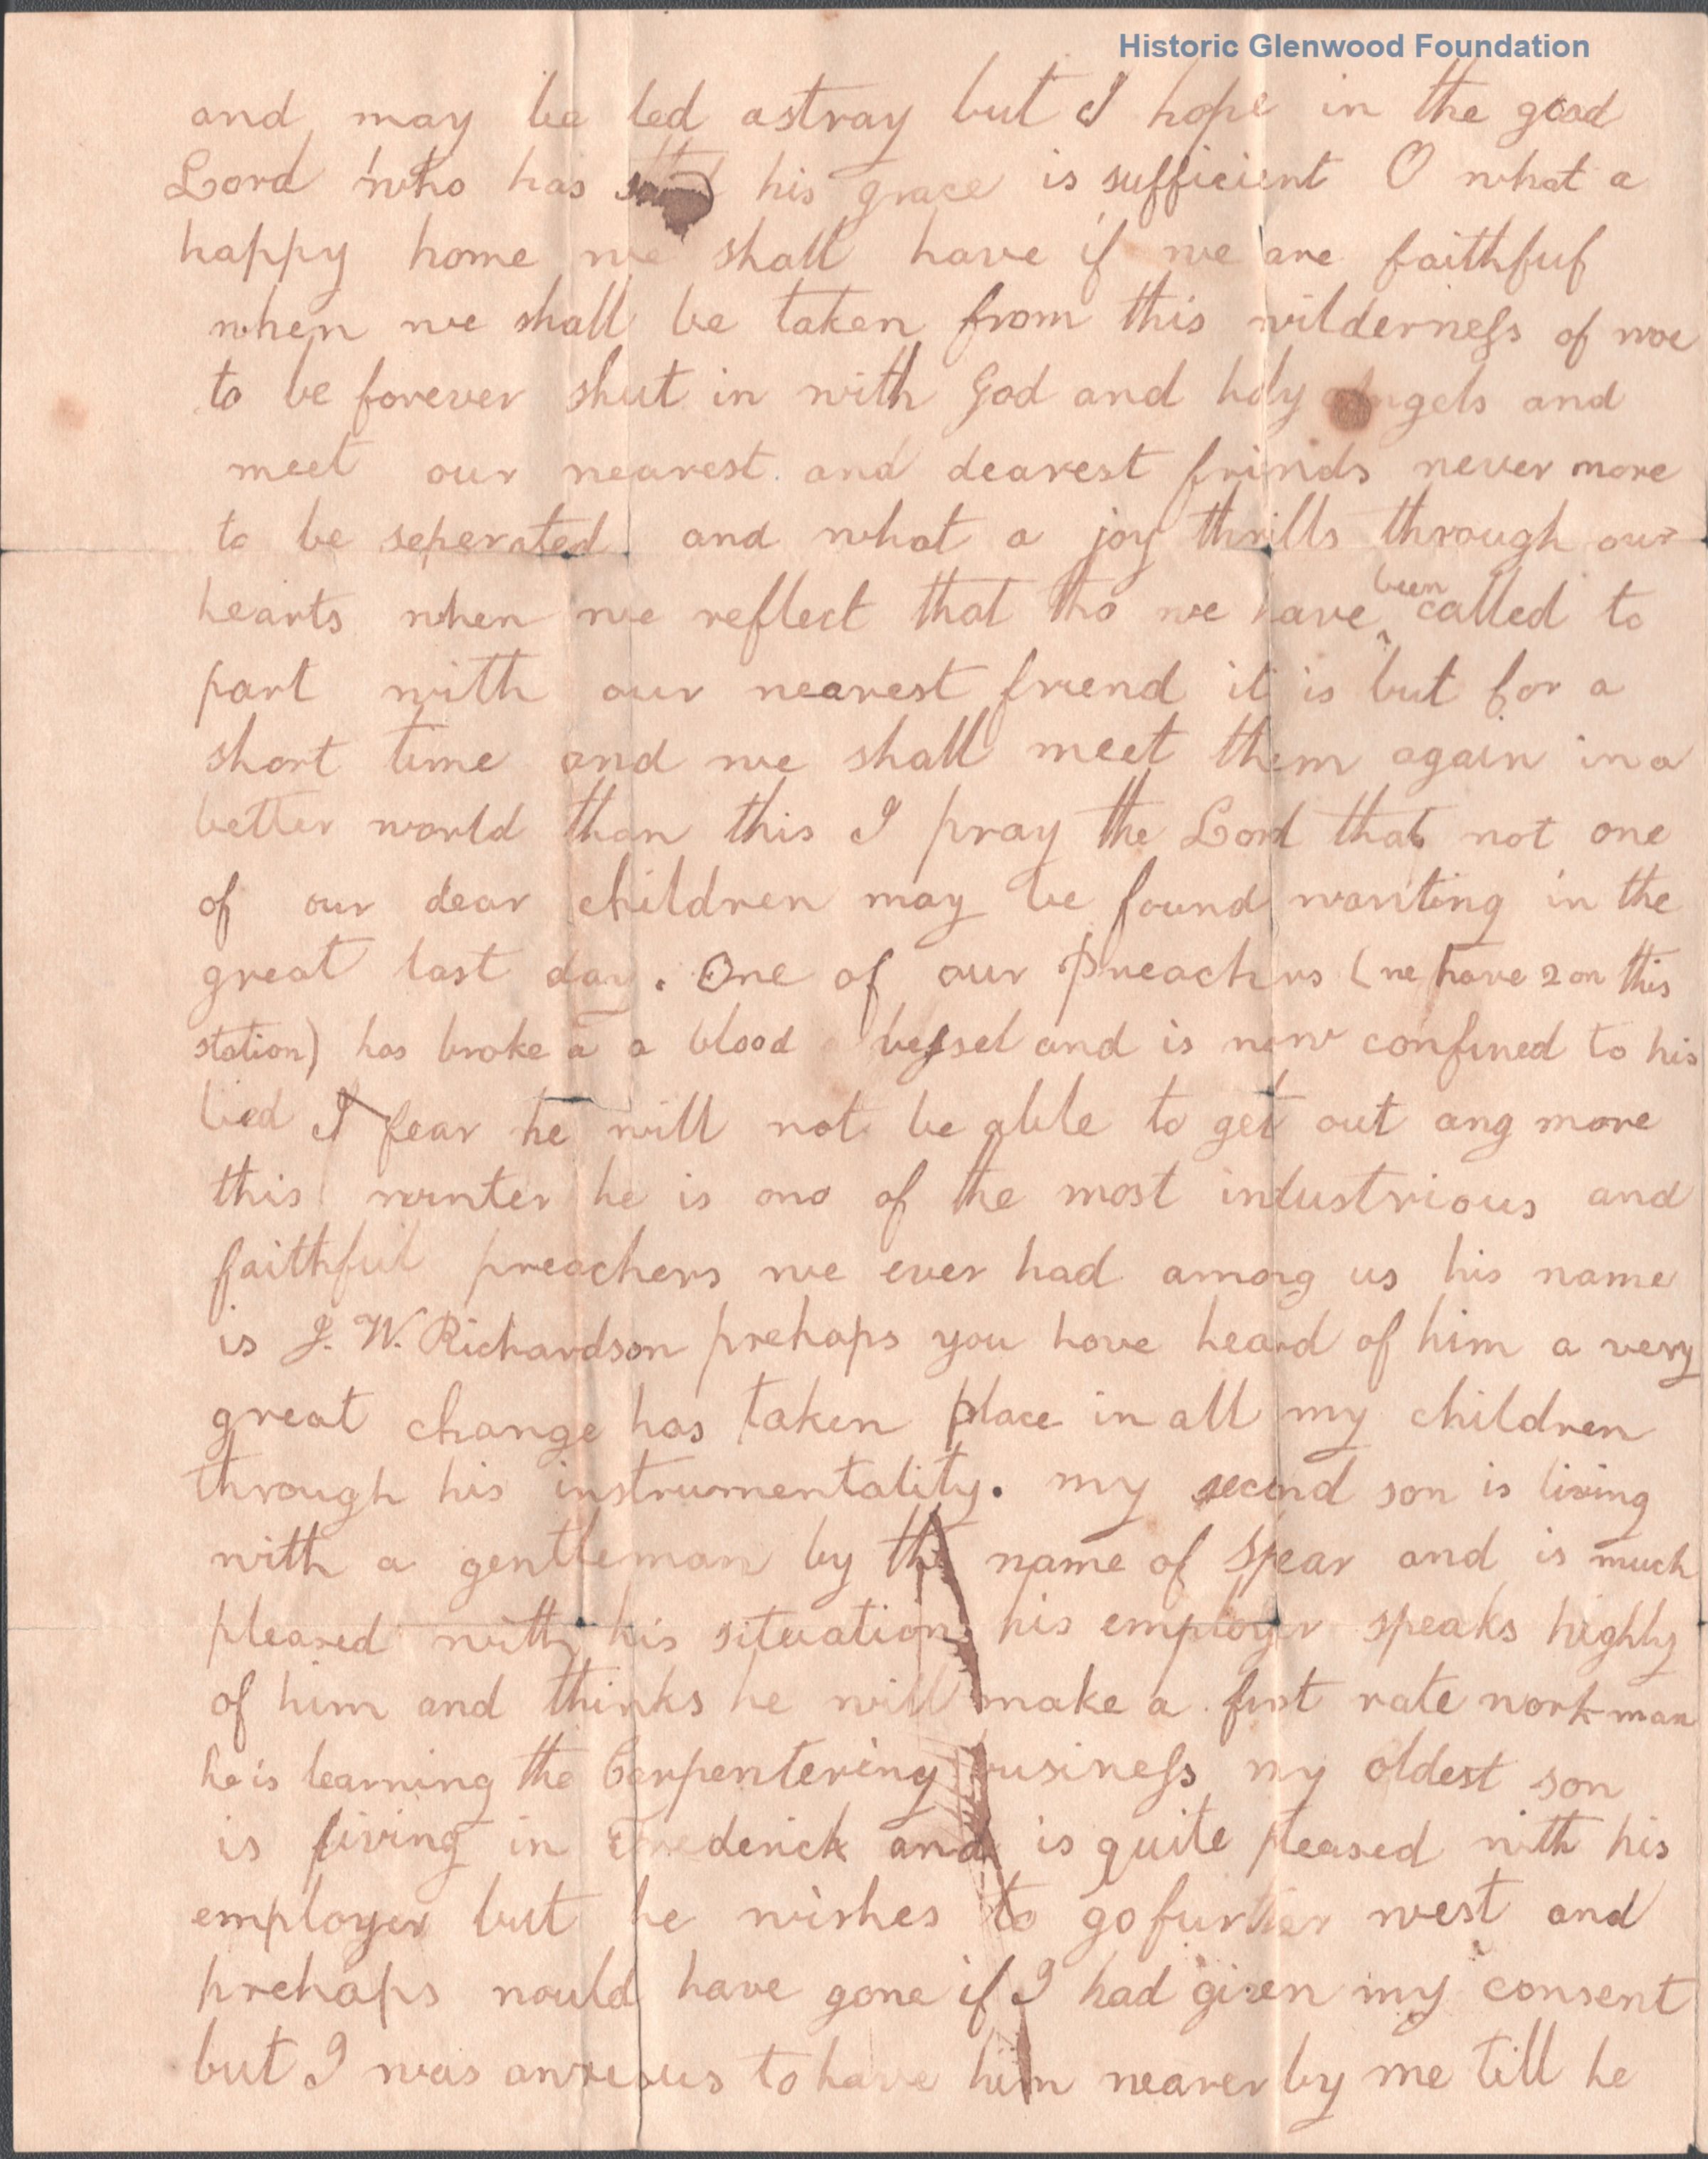 Historic Glenwood Foundation
and may be led astray but I hope in the good
Lord who has his grace is sufficient O what a
happy home we shall have if we are faithful
when we shall be taken from this wilderness of woe
to be forever shut in with God and holy Angels and
meet our nearest and dearest frinds never more
to be seperated and what a joy thrills through our
hearts when we reflect that tho we have been called to
part with our nearest friend it is but for a
short time and we shall meet them again in a
better world than this I pray the Lord that not one
of our dear children may be found wanting in the
great last day. One of our Preachers (we have 2 on this
station) has broke a a blood vessel and is now confined to his
bed I fear he will not be able to get out any more
this winter he is one of the most industrious and
faithful preachers we ever had among us his name
is J. W. Richardson prehaps you have heard of him a very
great change has taken place in all my children
through his instrumentality. my second son is living
with a gentleman by the name of Spear and is much
pleased with his situation his employer speaks highly
of him and thinks he will make a first rate workman
he is learning the Carpentering business my oldest son
is living in Frederick and is quite pleased with his
employer but he wishes to go further west and
prehaps would have gone if I had given my consent
but I was anxious to have him nearer by me till he